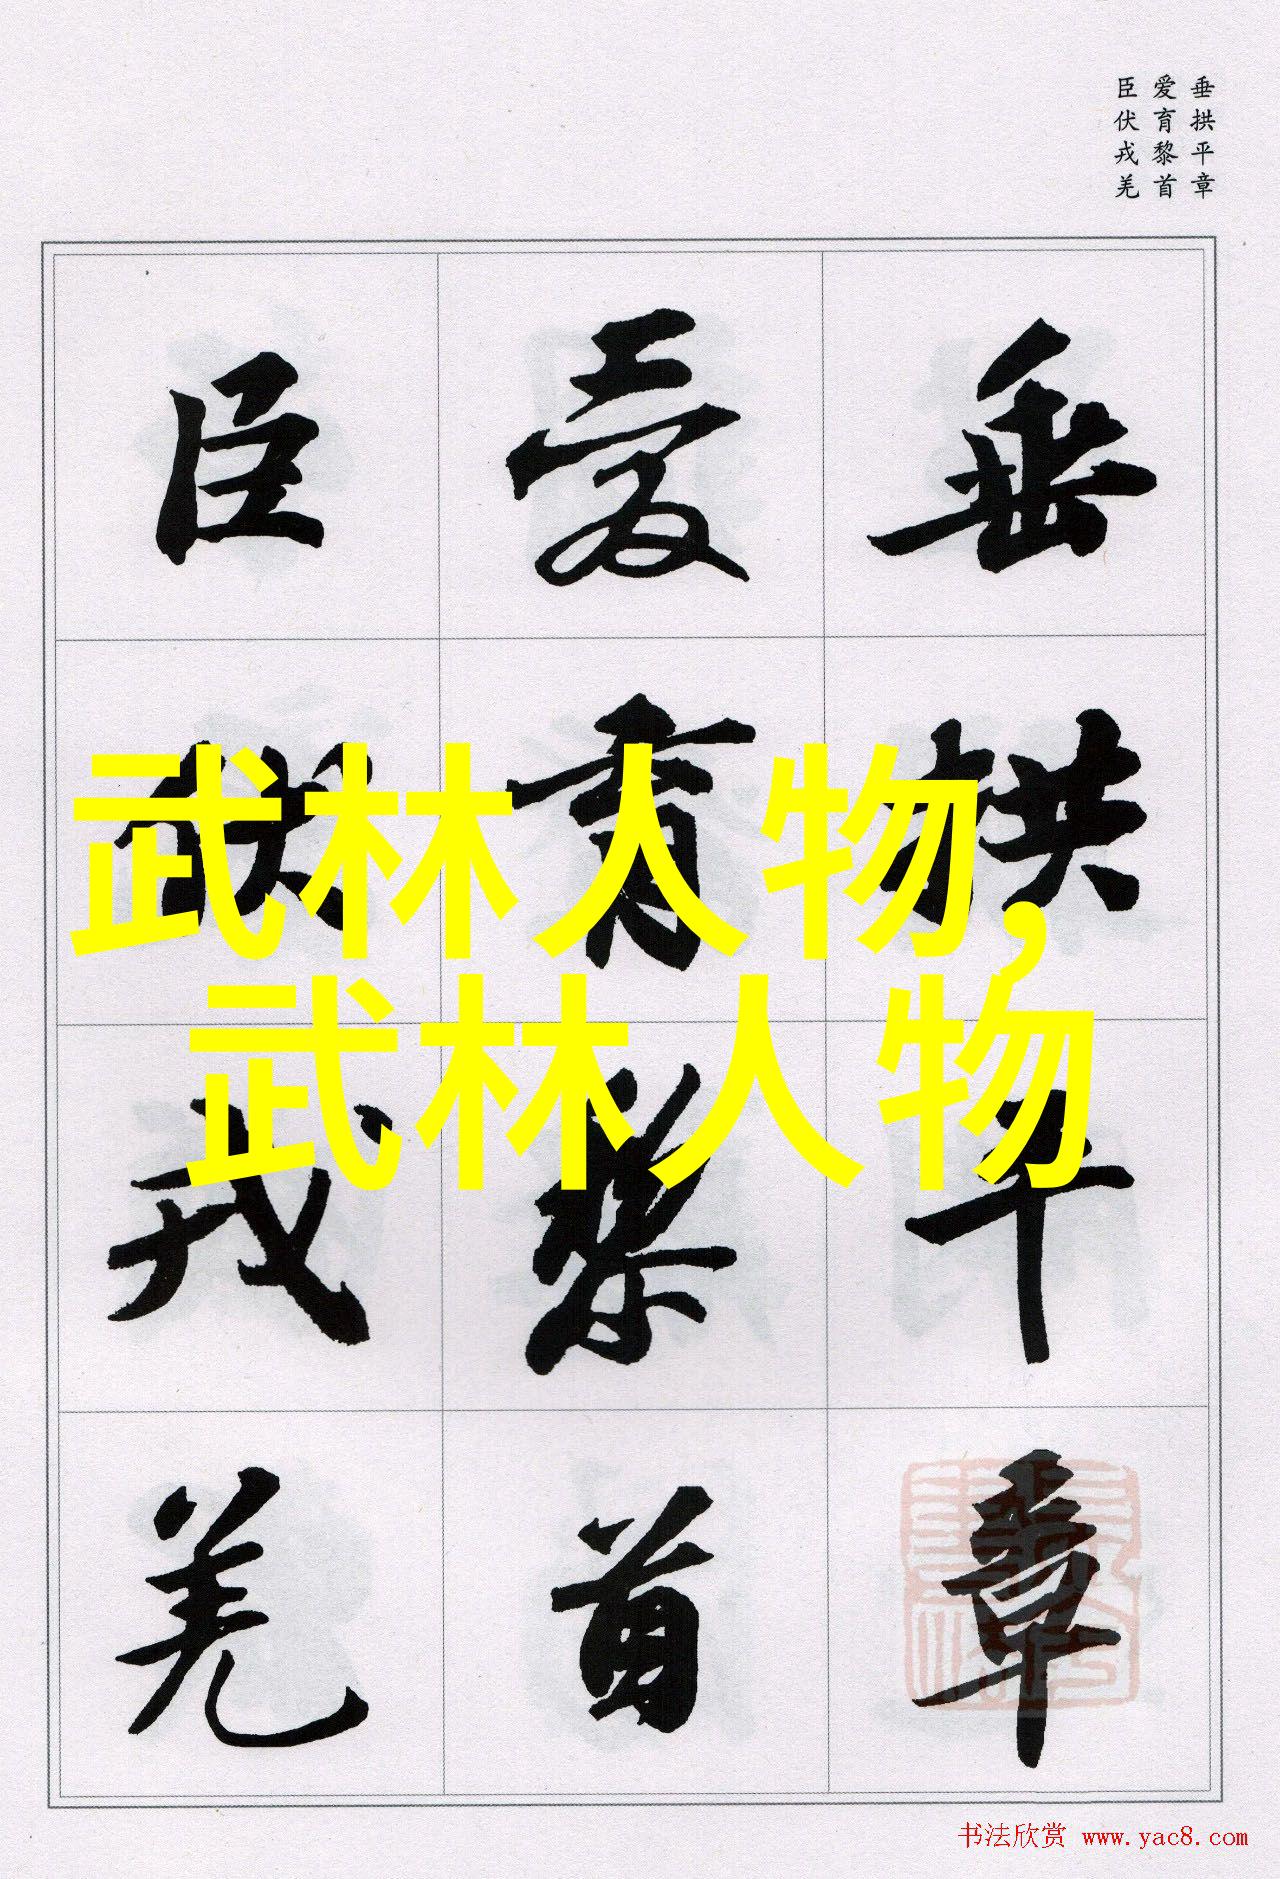 垂拱平章
爱育黎首
臣伏戎羌
垂拱平章
爱育黎首
臣伏戎羌
武林人物,
武林人物
书法欣赏 www.yac8.com